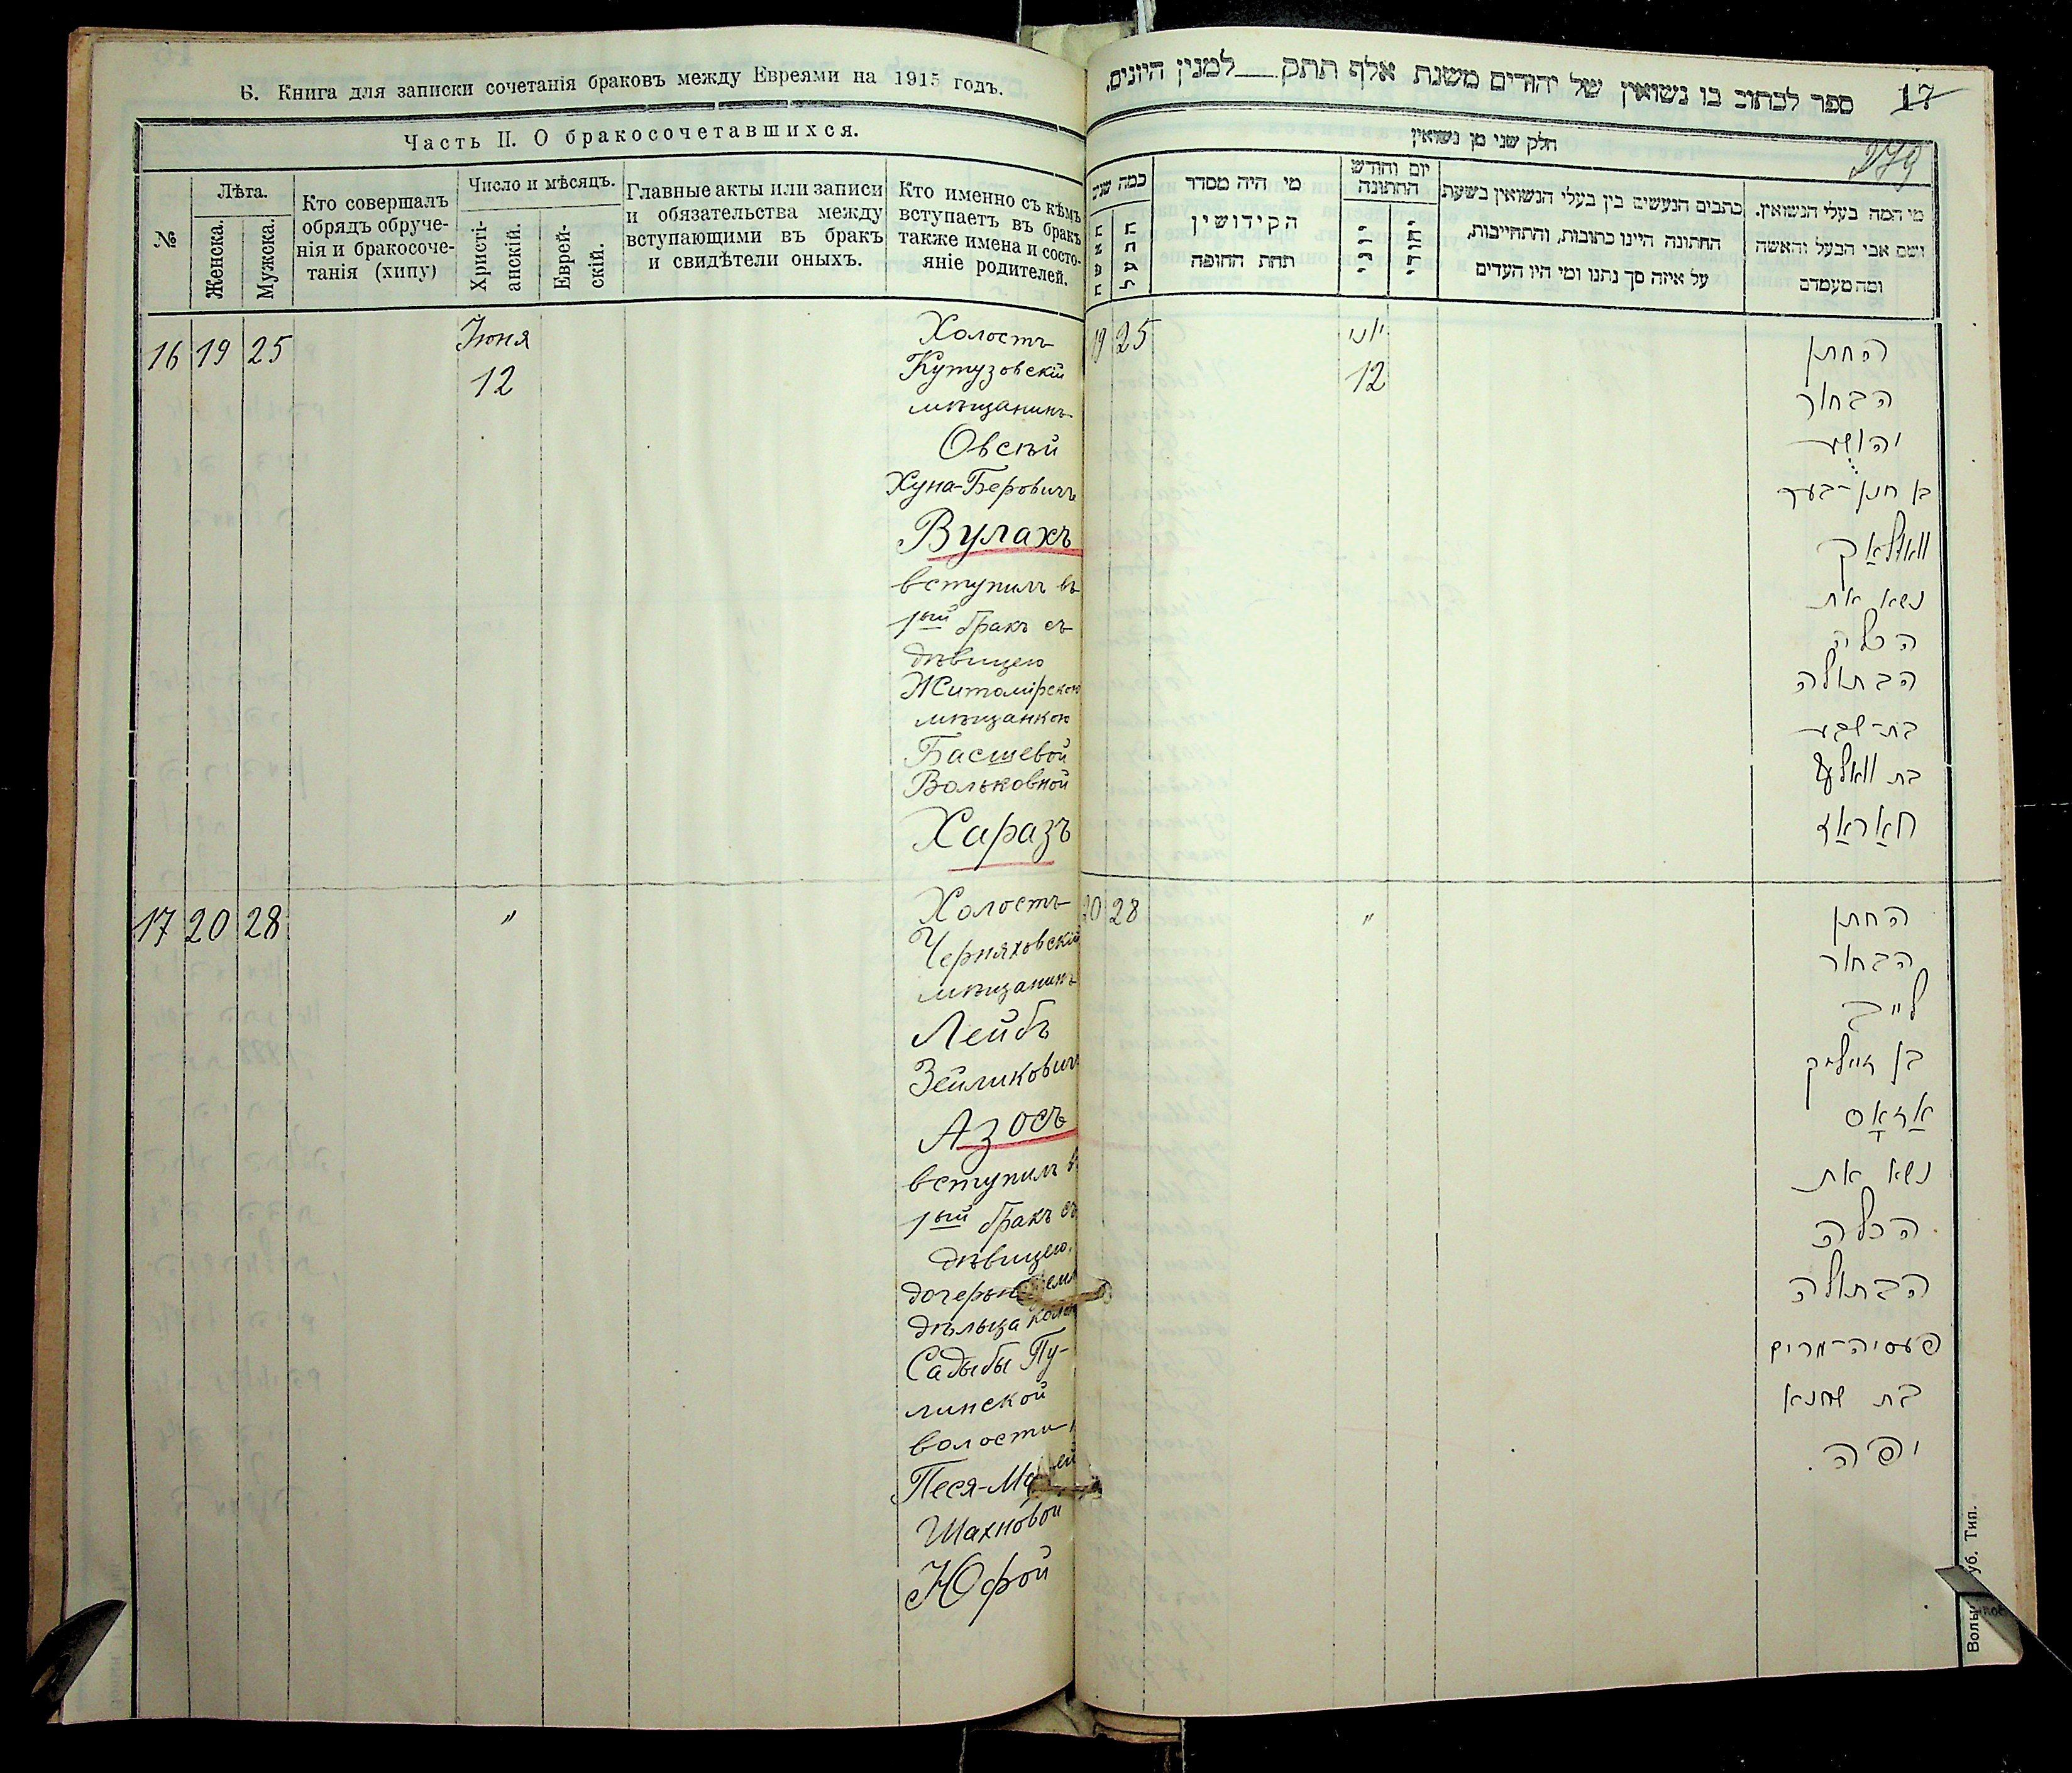 Б. Книга для записки сочетанія браковъ между Евреями на 1915 годъ.
Часть II. О бракосочетавшихся.
№
Лѣта.
Женска.
Мужска.
Кто совершалъ
обрядъ обруче-
нія и бракосоче-
танія (хипу)
Число и мѣсяцъ.
Христі-
анскій.
Еврей-
скій.
Главные акты или записи
и обязательства между
вступающими въ бракъ
и свидѣтели оныхъ.
Кто именно съ кѣмъ
вступаетъ въ бракъ
также имена и состо-
яніе родителей.
16 19 25
Іюня
12
Холостъ
Кутузовскій
мѣщанинъ
Овсѣй
Хуна-Беровичъ
Вулахъ
вступилъ въ
1ый бракъ съ
дѣвицею
Житомірскою
мѣщанкою
Басшевой
Вольковной
Харазъ
17 20 28
"
Холостъ
Черняховскій
мѣщанинъ
Лейбъ
Зейликовичъ
Азосъ
вступилъ въ
1ый бракъ съ
дѣвицею,
дочерью
дѣльца
Садыбы Пу-
линской
волости
Песя-
Шахновой
Юфой
ספר לכתוב בו נשואין של יהודים משנת אלף תתק___למנין היונים.
17
279
חלק שני מן נשואין
כמה שנים
האשה
הבעל
מי היה מסדר
הקידושין
תחת החופה
יום וחודש
החתונה
יוני
יהודי
כתבים הנעשים בין בעלי הנשואין בשעת
החתונה היינו כתובות, והתחייבות,
על איזה סך נתנו ומי היו העדים
מי המה בעלי הנשואין.
ושם אבי הבעל והאשה
ומה מעמדם
19 25
יוני
12
החתן
הבחור
יהושע
בן חנן-בער
וואולאַך
נשא את
הכלה
הבתולה
בת-שבע
בת וואלף
חאַראַז
20 28
"
החתן
הבחור
לייב
בן זייליק
אַזאָס
נשא את
הכלה
הבתולה
פעסיה-מרים
בת שחנא
יפה
уб. Тип.
Волы